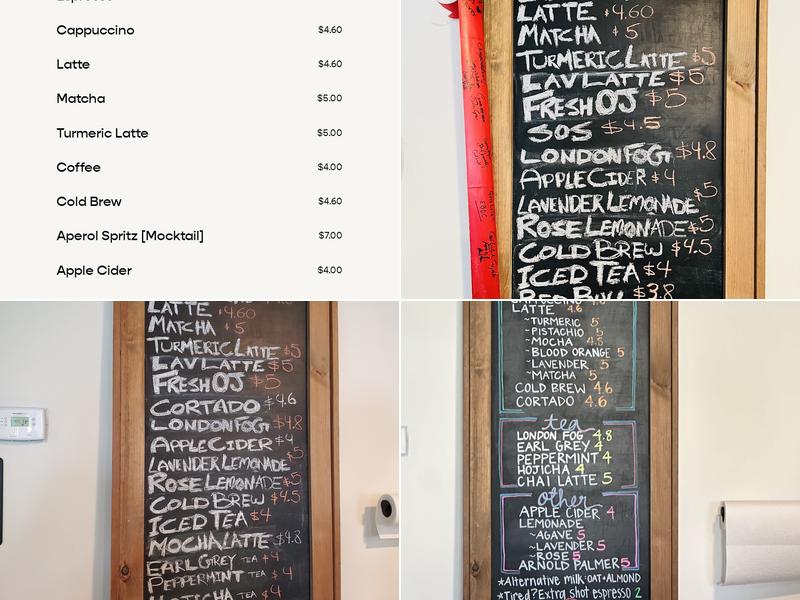 Cappuccino $4.60
Latte $4.60
Matcha $5.00
Turmeric Latte $5.00
Coffee $4.00
Cold Brew $4.60
Aperol Spritz [Mocktail] $7.00
Apple Cider $4.00
LATTE $4.60
MATCHA $5
TURMERIC LATTE $5
LAV LATTE $5
FRESH OJ $5
SOS $4.5
LONDON FOG $4.8
APPLE CIDER $4
LAVENDER LEMONADE $5
ROSE LEMONADE $5
COLD BREW $4.5
ICED TEA $4
RED BULL $3.8
LATTE $4.60
MATCHA $5
TURMERIC LATTE $5
LAV LATTE $5
FRESH OJ $5
CORTADO $4.6
LONDON FOG $4.8
APPLE CIDER $4
LAVENDER LEMONADE $5
ROSE LEMONADE $5
COLD BREW $4.5
ICED TEA $4
MOCHA LATTE $4.8
EARL GREY TEA $4
PEPPERMINT TEA $4
HOJICHA TEA $4
CAPPUCCINO 4.6
LATTE 4.6
~TURMERIC 5
~PISTACHIO 5
~MOCHA 4.8
~BLOOD ORANGE 5
~LAVENDER 5
~MATCHA 5
COLD BREW 4.6
CORTADO 4.6
tea
LONDON FOG 4.8
EARL GREY 4
PEPPERMINT 4
HOJICHA 4
CHAI LATTE 5
other
APPLE CIDER 4
LEMONADE
~AGAVE 5
~LAVENDER 5
~ROSE 5
ARNOLD PALMER 5
*Alternative milk: OAT + ALMOND
*Tired? Extra shot espresso 2